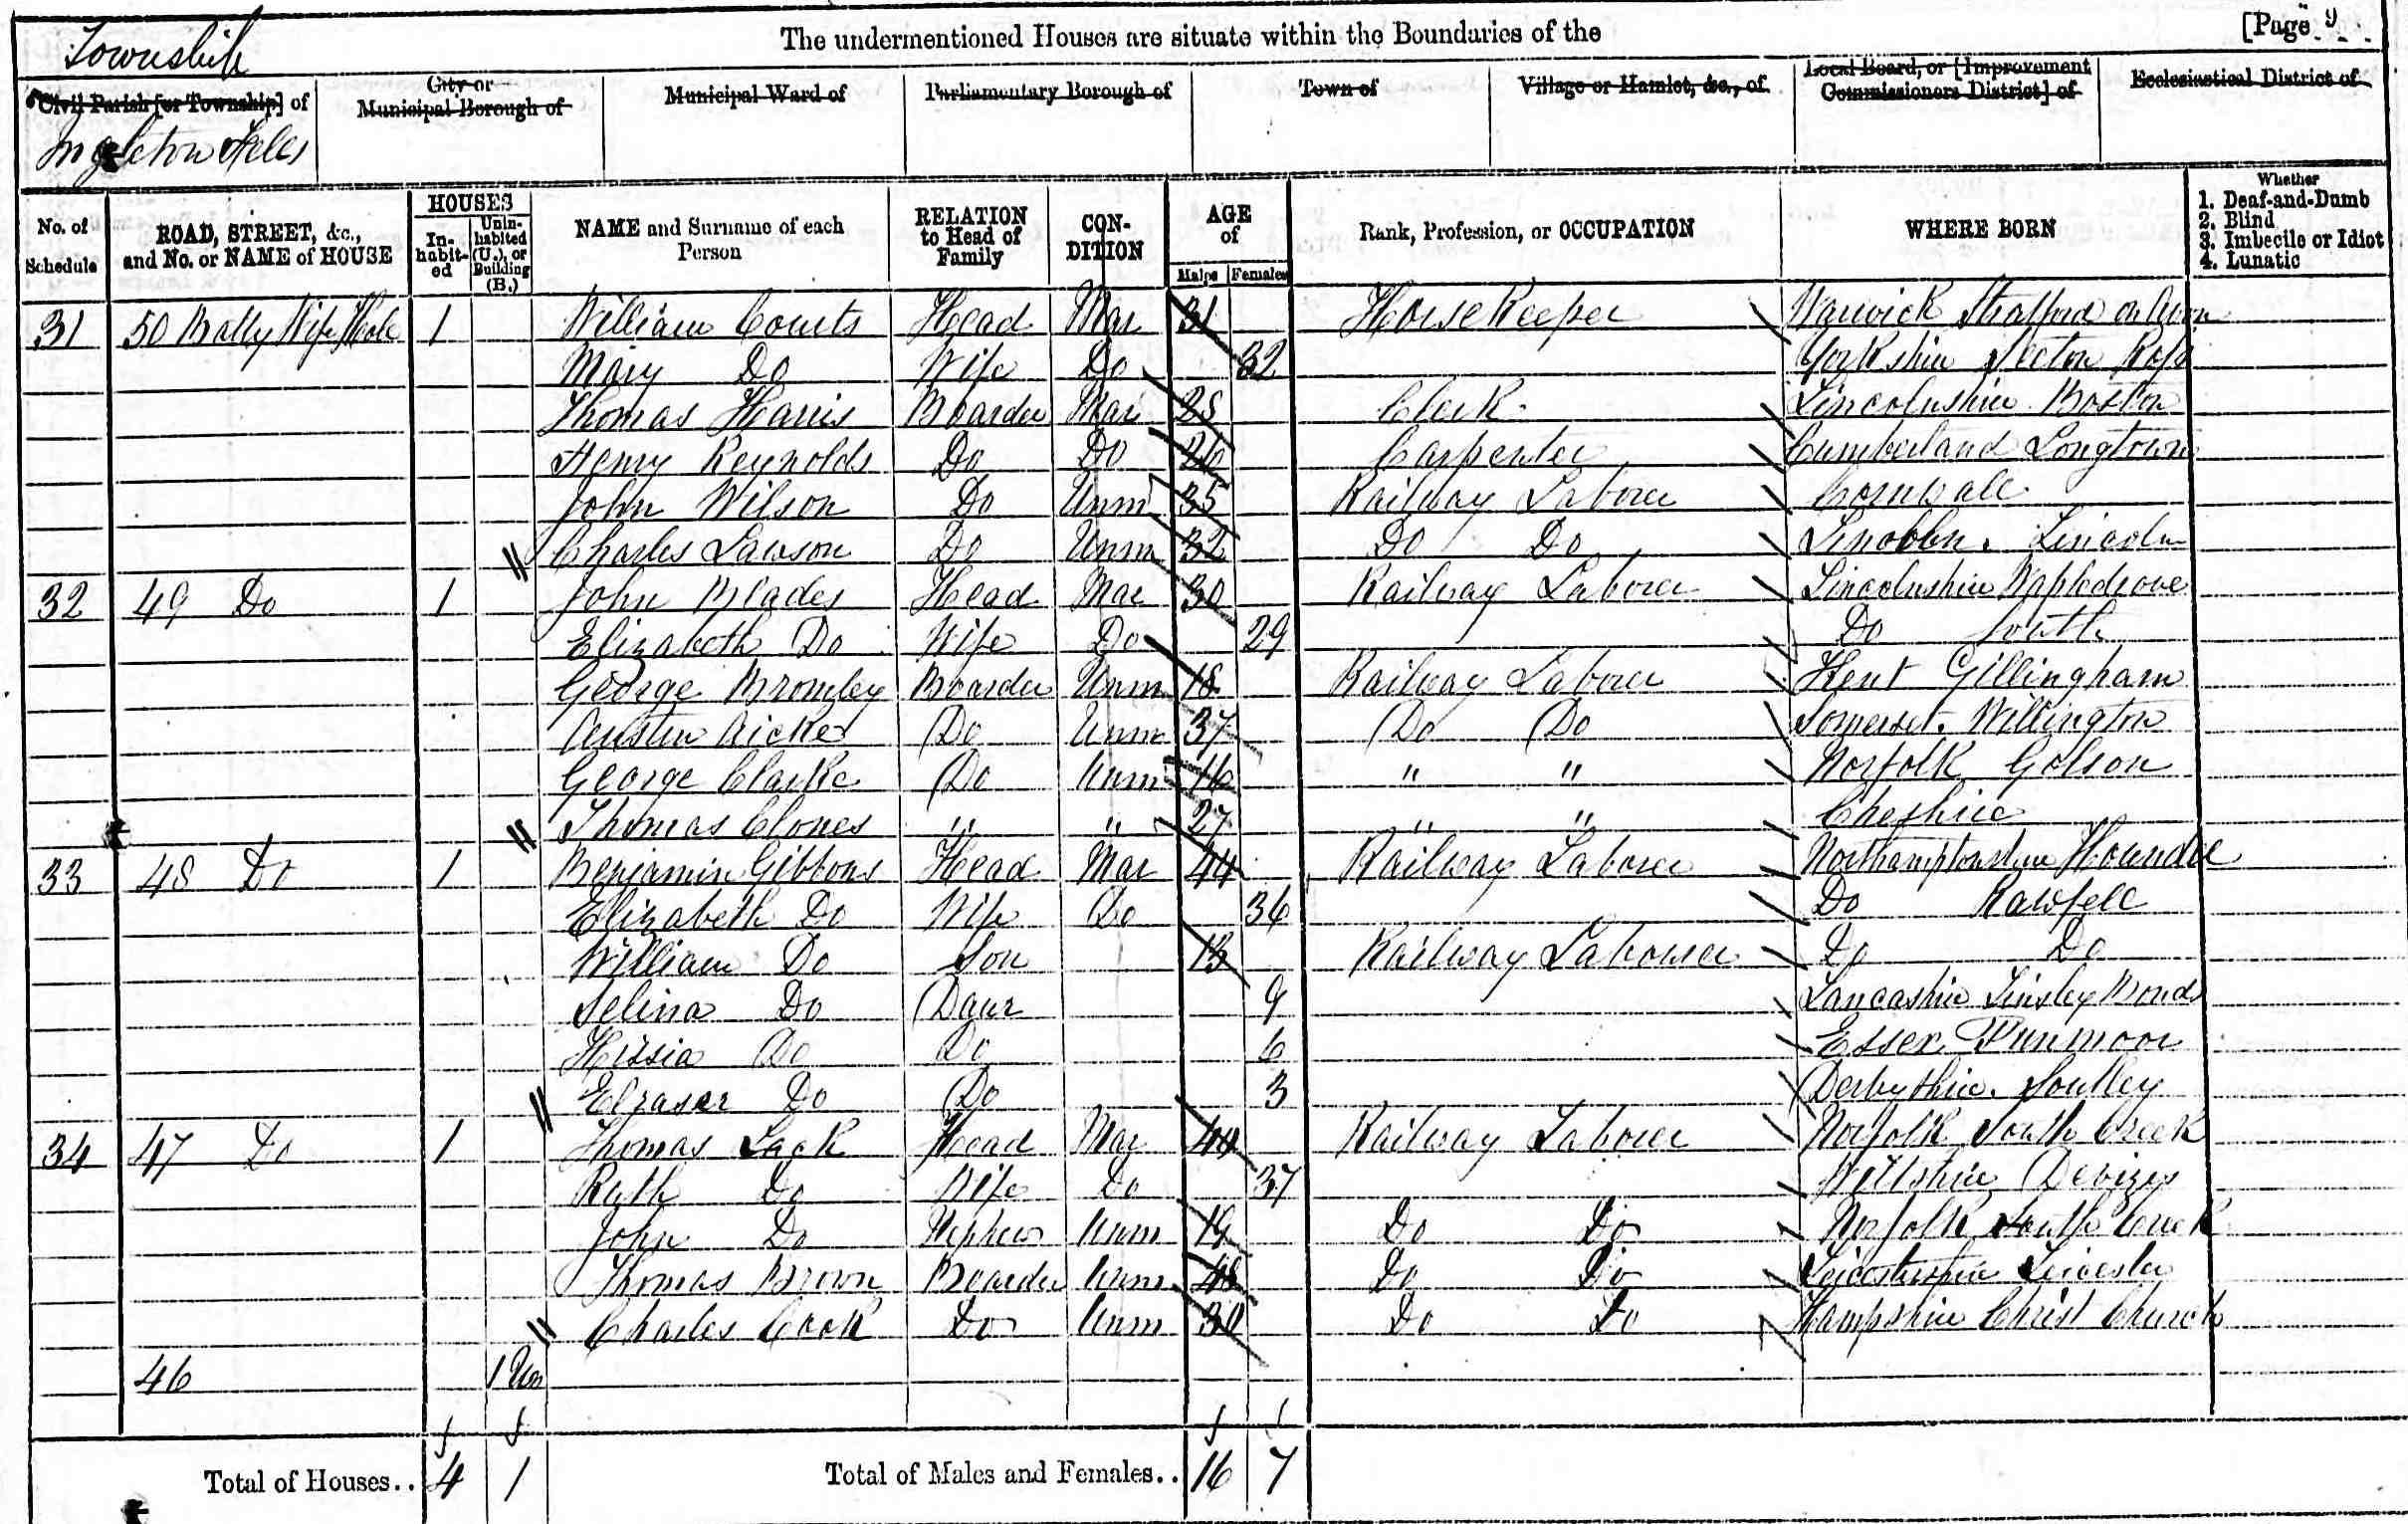 The undermentioned Houses are situate within the Boundaries of the
[Page 9
Township
Civil Parish [or Township] of
City or Municipal Borough of
Municipal Ward of
Parliamentary Borough of
Town of
Village or Hamlet, &c., of
Local Board, or [Improvement Commissioners District] of
Ecclesiastical District of
Ingleton Fells
No. of Schedule
ROAD, STREET, &c., and No. or NAME of HOUSE
HOUSES
In-habit-ed
Unin-habited (U.), or Building (B.)
NAME and Surname of each Person
RELATION to Head of Family
CON-DITION
AGE of
Males
Females
Rank, Profession, or OCCUPATION
WHERE BORN
Whether
1. Deaf-and-Dumb
2. Blind
3. Imbecile or Idiot
4. Lunatic
31 50 Batty Wife Hole 1 William Courts Head Mar 31 Horse Keeper Warwick Stratford on Avon
Mary Do Wife Do 32 Yorkshire
Thomas Harris Boarder Mar 28 Clerk Lincolnshire Boston
Henry Reynolds Do Do 26 Carpenter Cumberland Longtown
John Wilson Do Unm 35 Railway Laborer Cornwall
Charles Lawson Do Unm 32 Do Do Lincoln. Lincoln
32 49 Do 1 John Blades Head Mar 30 Railway Laborer Lincolnshire
Elizabeth Do Wife Do 29 Do South
George Bromley Boarder Unm 18 Railway Laborer Kent Gillingham
Austin Do Unm 37 Do Do Somerset. Willington
George Clarke Do Unm 16 " " Norfolk Golson
Thomas Clones " " 27 " " Cheshire
33 48 Do 1 Benjamin Gibbons Head Mar 44 Railway Laborer Northamptonshire
Elizabeth Do Wife Do 36 Do
William Do Son 13 Railway Labourer Do Do
Selina Do Daur 9 Lancashire
Hissia Do Do 6 Essex
Do Do 3 Derbyshire.
34 47 Do 1 Thomas Lack Head Mar 44 Railway Laborer Norfolk South Creek
Ruth Do Wife Do 37 Wiltshire Devizes
John Do Nephew Unm 19 Do Do Norfolk South Creek
Thomas Brown Boarder Unm 48 Do Do Leicestershire Leicester
Charles Cook Do Unm 30 Do Do Hampshire Christ Church
46 1 Un
Total of Houses.. 4 1 Total of Males and Females.. 16 7